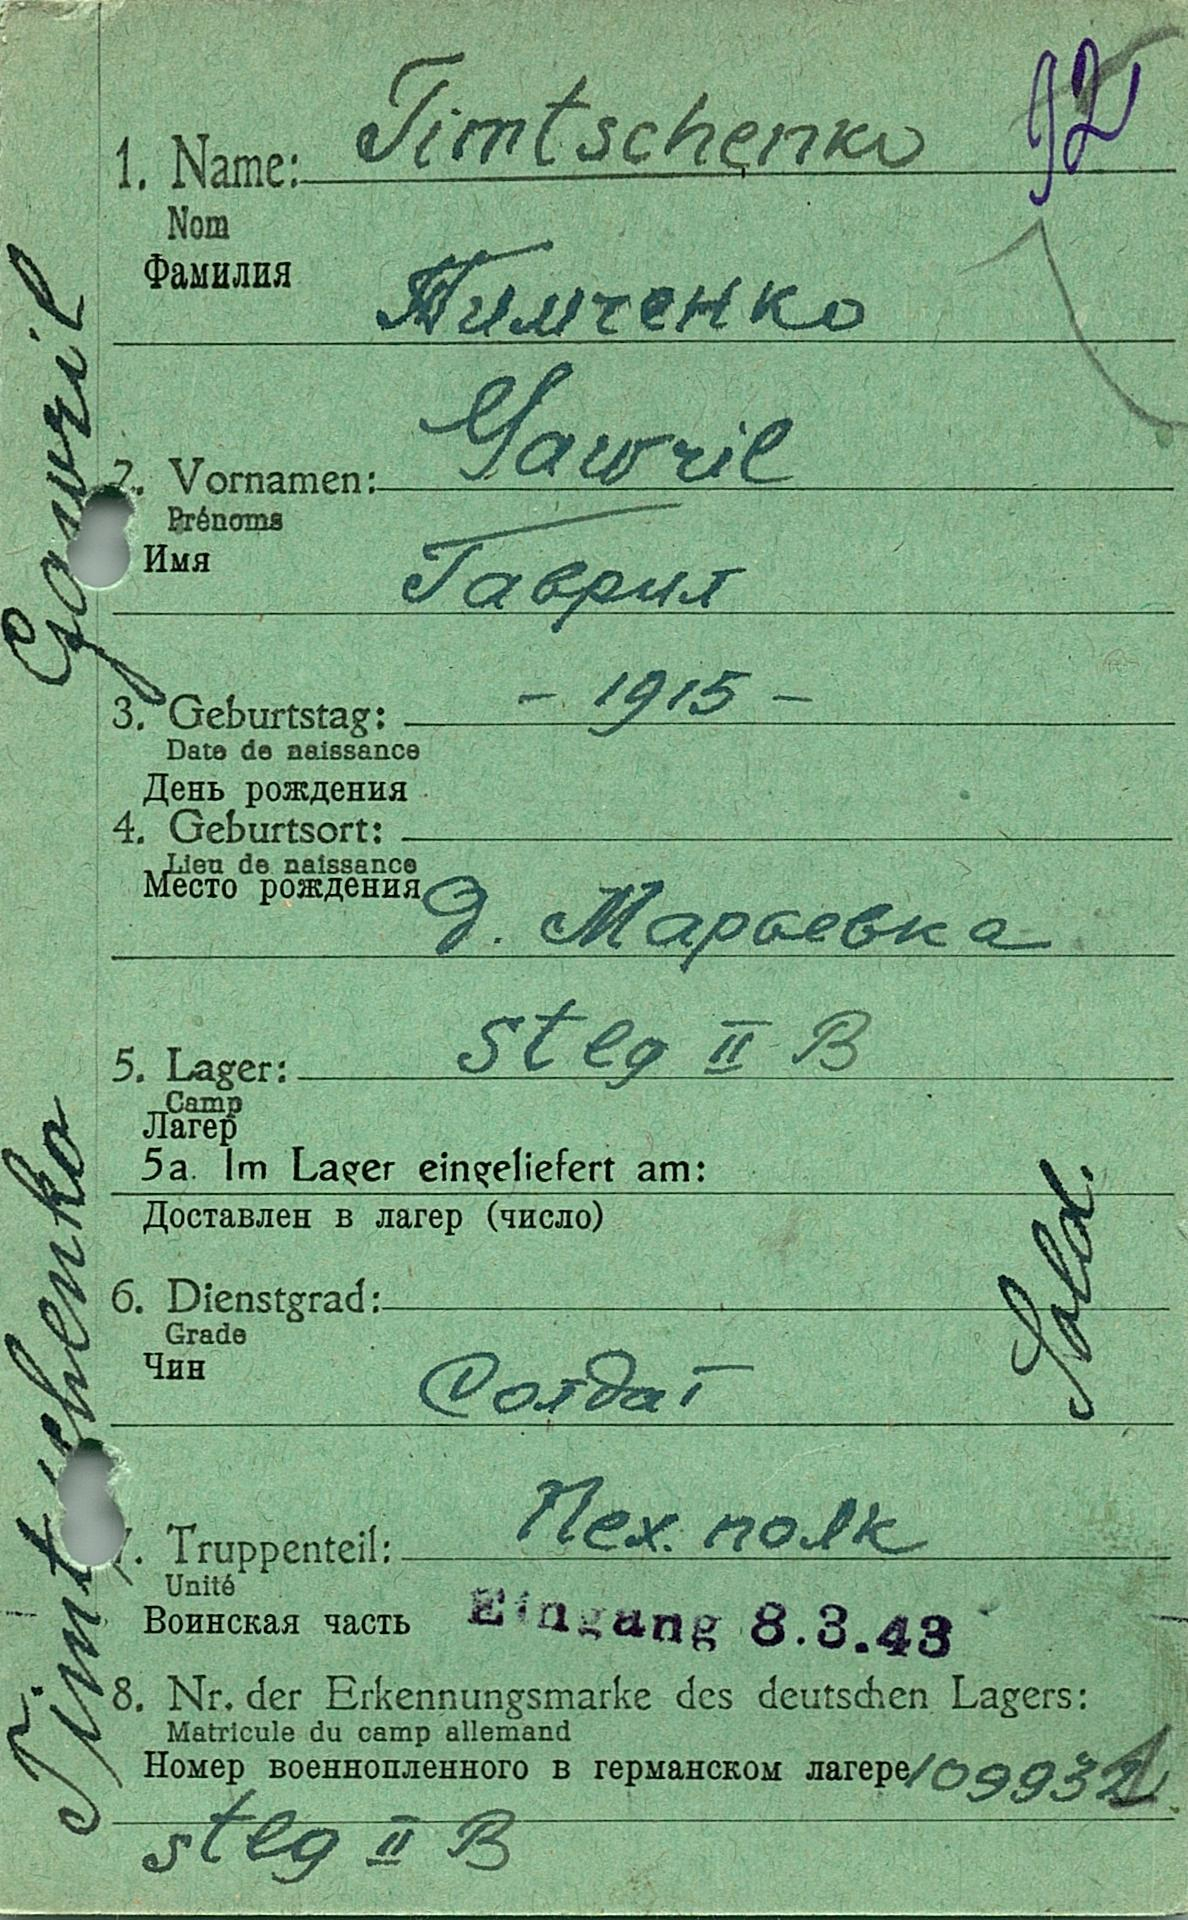 92
1. Name: Timtschenko
Nom
Фамилия
Тимченко
2. Vornamen: Gawril
Prénoms
Имя
Гаврил
3. Geburtstag: - 1915 -
Date de naissance
День рождения
4. Geburtsort:
Lieu de naissance
Место рождения
д. Мараевка
5. Lager: Stlg II B
Camp
Лагер
5a. Im Lager eingeliefert am:
Доставлен в лагер (число)
6. Dienstgrad:
Grade
Чин
Солдат
Sold.
7. Truppenteil: Пех. полк
Unité
Воинская часть
Eingang 8.3.43
8. Nr. der Erkennungsmarke des deutschen Lagers:
Matricule du camp allemand
Номер военнопленного в германском лагере 109932
Stlg II B
Timtschenko Gawril